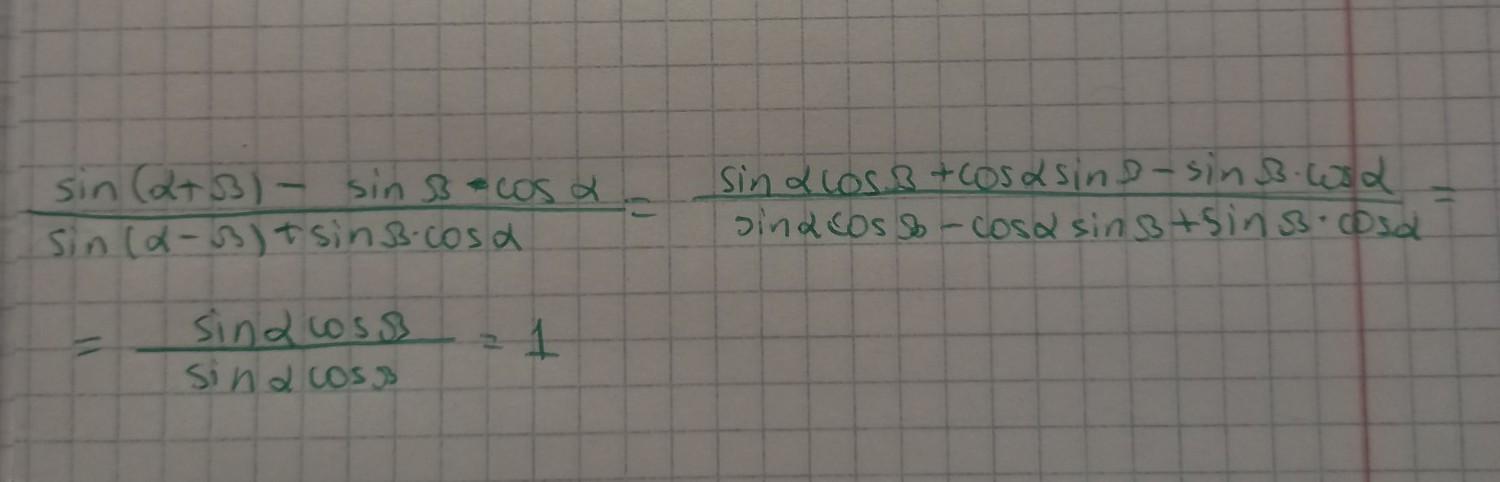 sin(α+β) - sin β · cos α / sin(α-β) + sin β · cos α = sin α cos β + cos α sin β - sin β · cos α / sin α cos β - cos α sin β + sin β · cos α =
= sin α cos β / sin α cos β = 1